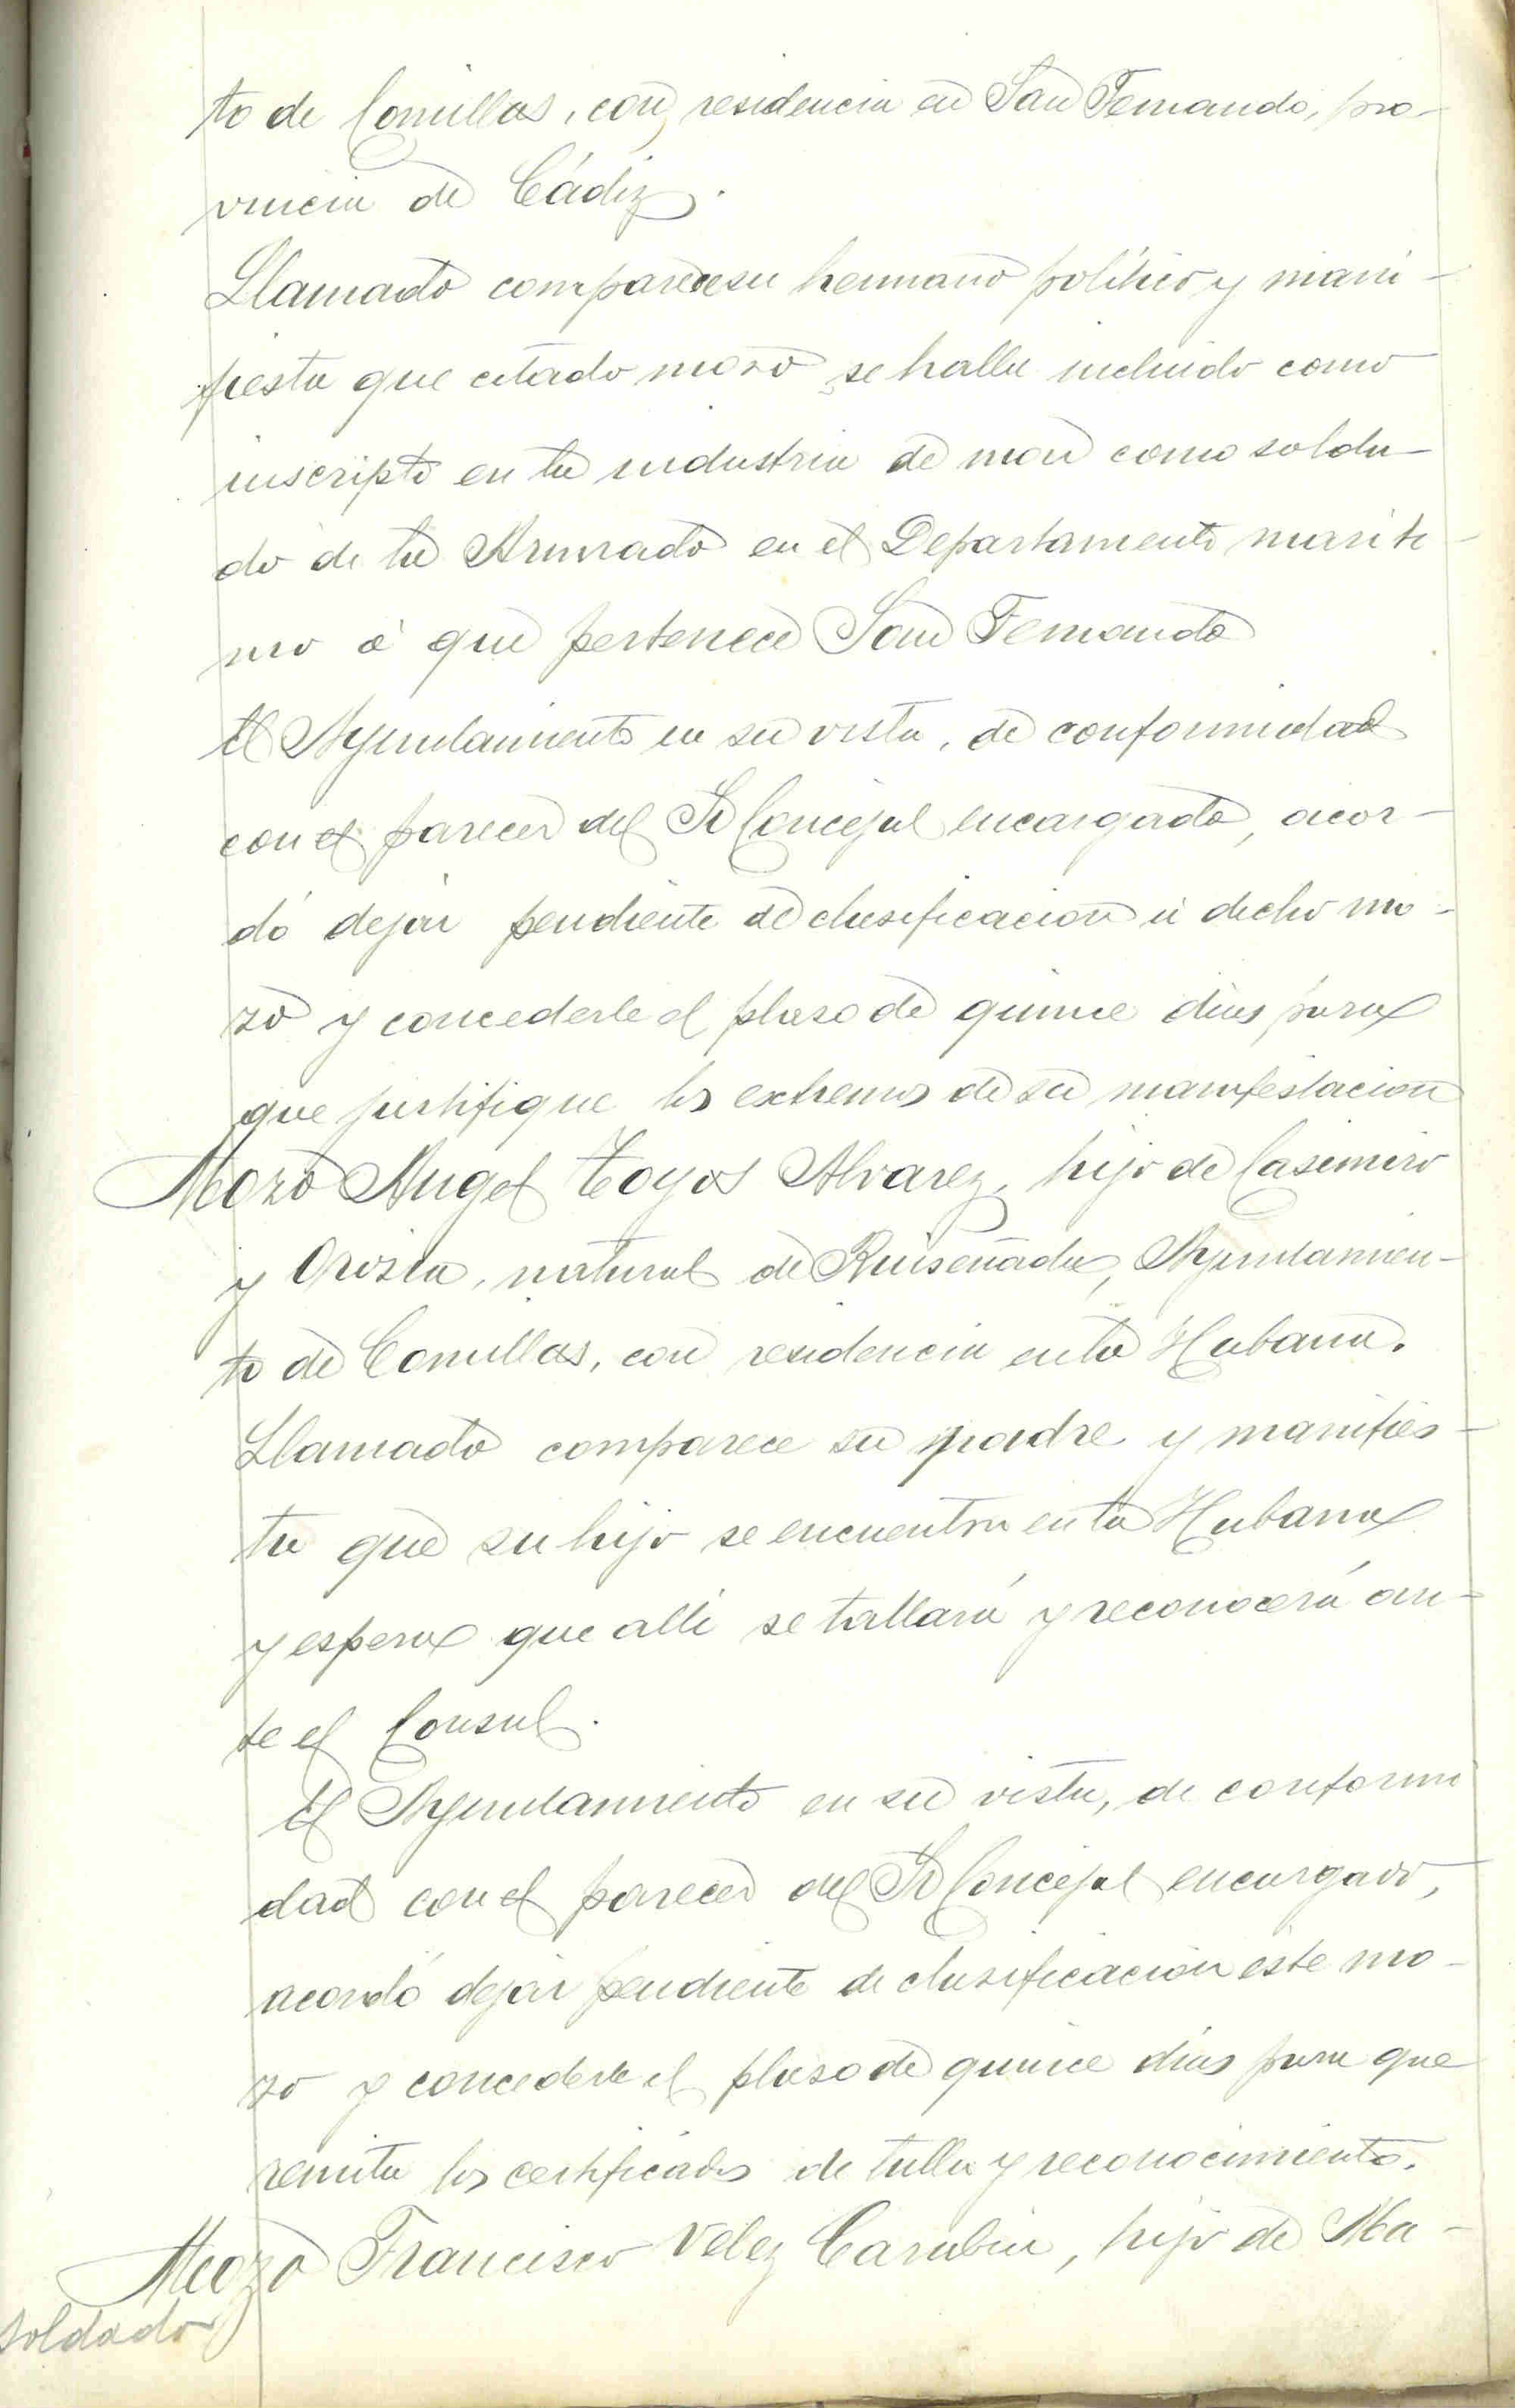 to de Comillas, con residencia en San Fernando, pro-
vincia de Cádiz.
Llamado comparece su hermano político y mani-
fiesta que citado mozo se halla incluido como
inscripto en la industria de mar como solda-
do de la Armada en el Departamento maríti
mo á que pertenece San Fernando
El Ayuntamiento en su vista, de conformidad
con el parecer del Sr Concejal encargado, acor-
dó dejar pendiente de clasificacion á dicho mo-
zo y concederle el plaso de quince dias para
que justifique los extremos de su manifestacion
Mozo Angel Toyos Alvarez, hijo de Casimiro
y Orosia, natural de Ruiseñada, Ayuntamien-
to de Comillas, con residencia en la Habana.
Llamado comparece su padre y manifies-
ta que su hijo se encuentra en la Habana
y espera que alli se tallará y reconocerá an-
te el Consul.
El Ayuntamiento en su vista, de conformi
dad con el parecer del Sr Concejal encargado,
acordó dejar pendiente de clasificacion este mo-
zo y concederle el plaso de quince dias para que
remita los certificados de talla y reconocimiento.
Mozo Francisco Velez Carabia, hijo de Ma-
soldado